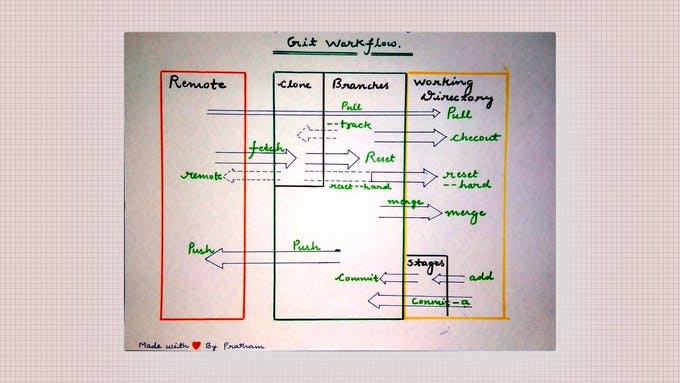 Git Workflow.
Remote
Clone
Branches
Working
Directory
Pull
Pull
--track
Checout
fetch
Reset
remote
reset--hard
reset
--hard
merge
merge
Push
Push
Stages
Commit
add
Commit-a
Made with ❤ By Pratham